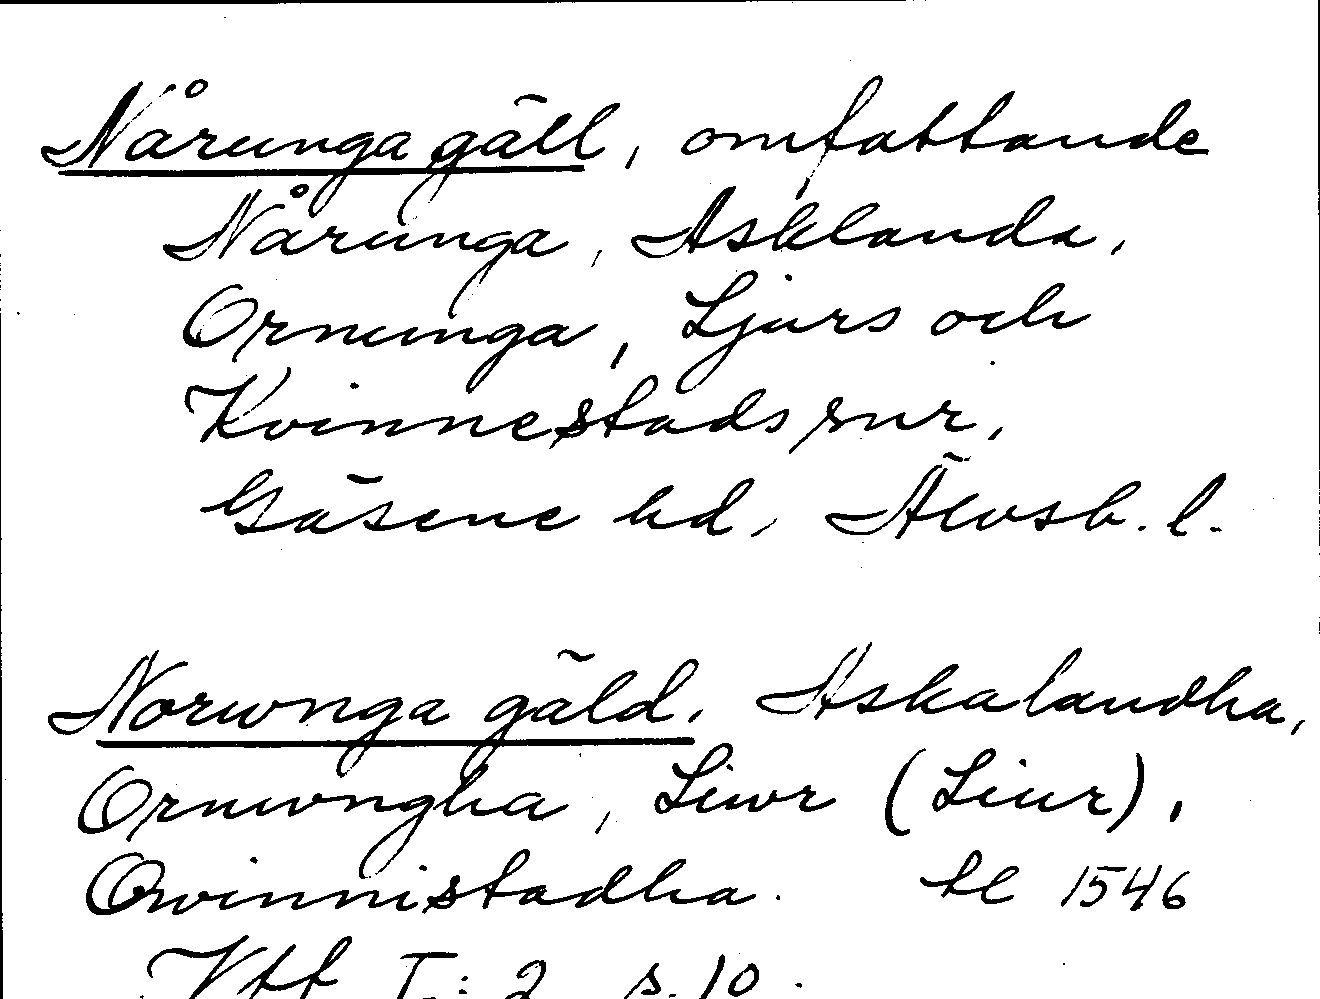 Nårunga gäll, omfattande
Nårunga, Asklanda,
Ornunga, Ljurs och
Kvinnestads snr,
Gäsene hd, Älvsb. l.
Norwnga gäld. Askalandha,
Ornwngha, Liwr (Liur),
Qwinnistadha. tl 1546
Vff I: 2 s. 10.